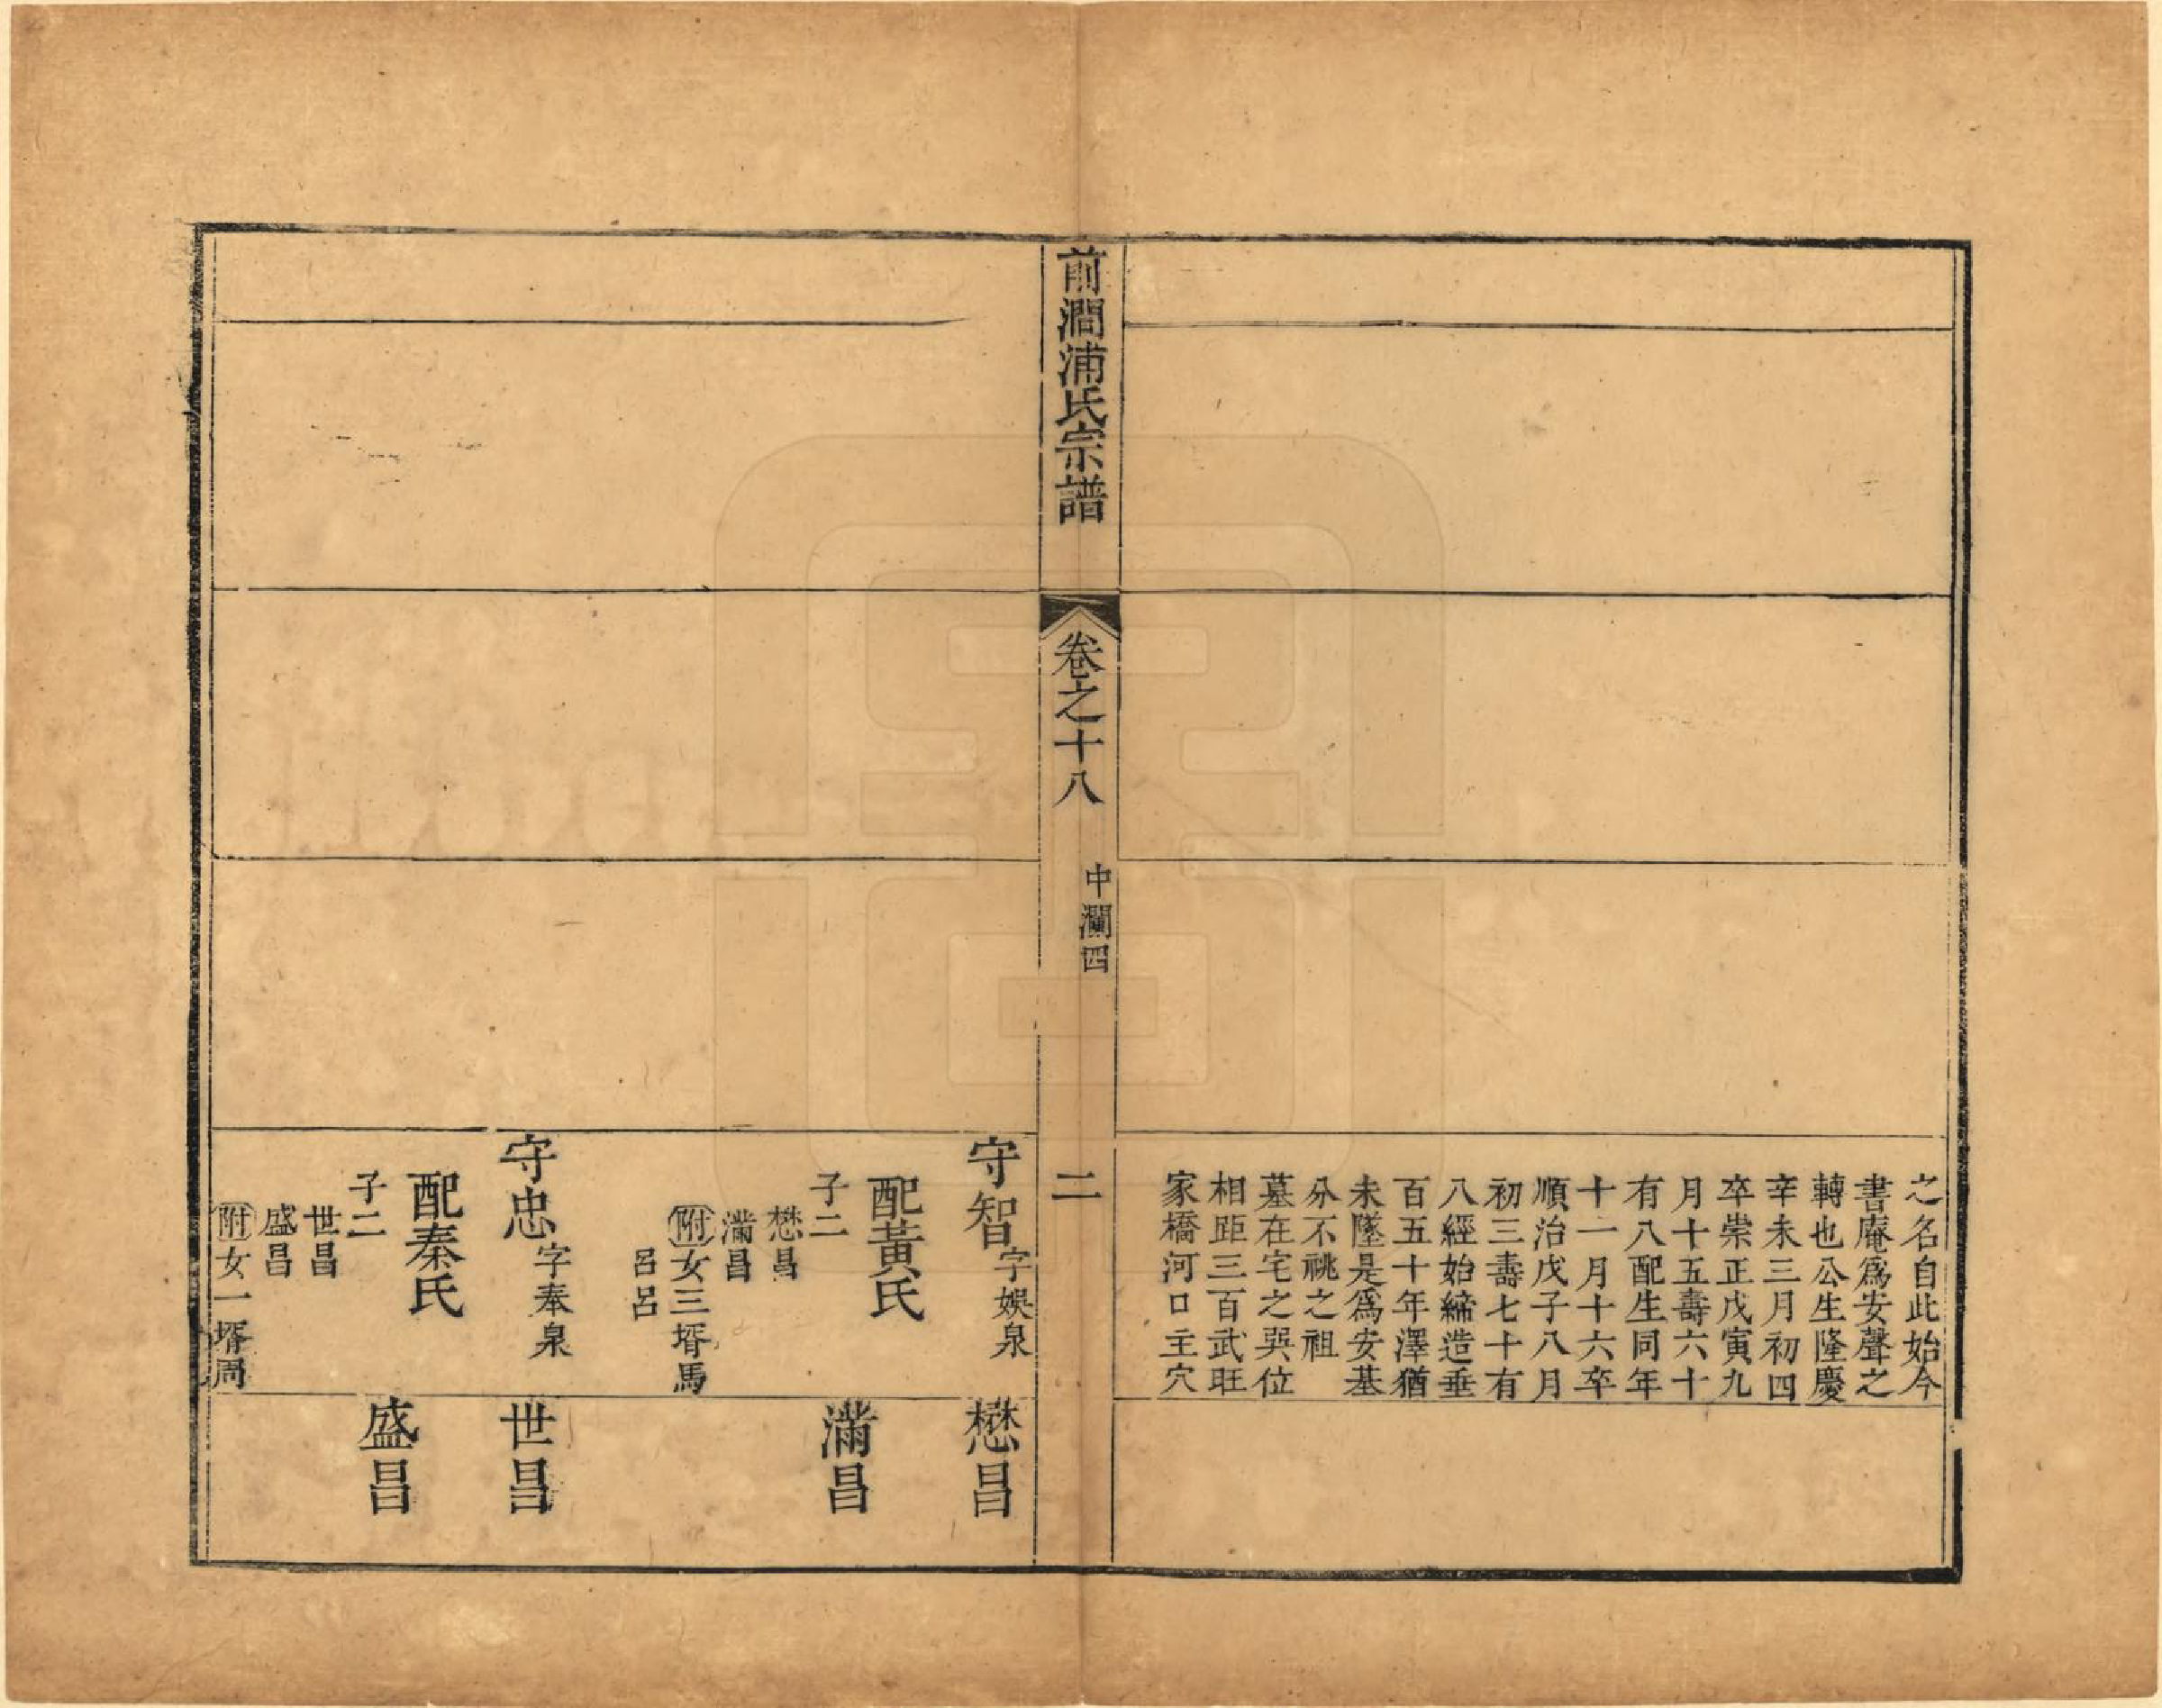 之名自此始今
書庵爲安聲之
轉也公生隆慶
辛未三月初四
卒崇正戊寅九
月十五壽六十
有八配生同年
十一月十六卒
順治戊子八月
初三壽七十有
八經始締造垂
百五十年澤猶
未墜是爲安基
分不祧之祖
墓在宅之巽位
相距三百武旺
家橋河口主穴
前澗浦氏宗譜
卷之十八
中瀾四
二
守智
字娛泉
配黃氏
子二
懋昌
滿昌
附女三壻馬
呂呂
守忠
字奉泉
配秦氏
子二
世昌
盛昌
附女一壻周
懋昌
滿昌
世昌
盛昌